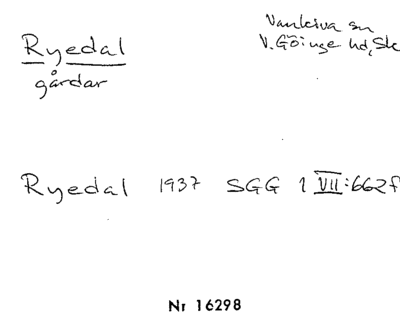 Ryedal
gårdar
Vankiva sn
V. Göinge hd, Sk
Ryedal 1937 SGG 1 VII:662f
Nr 16298